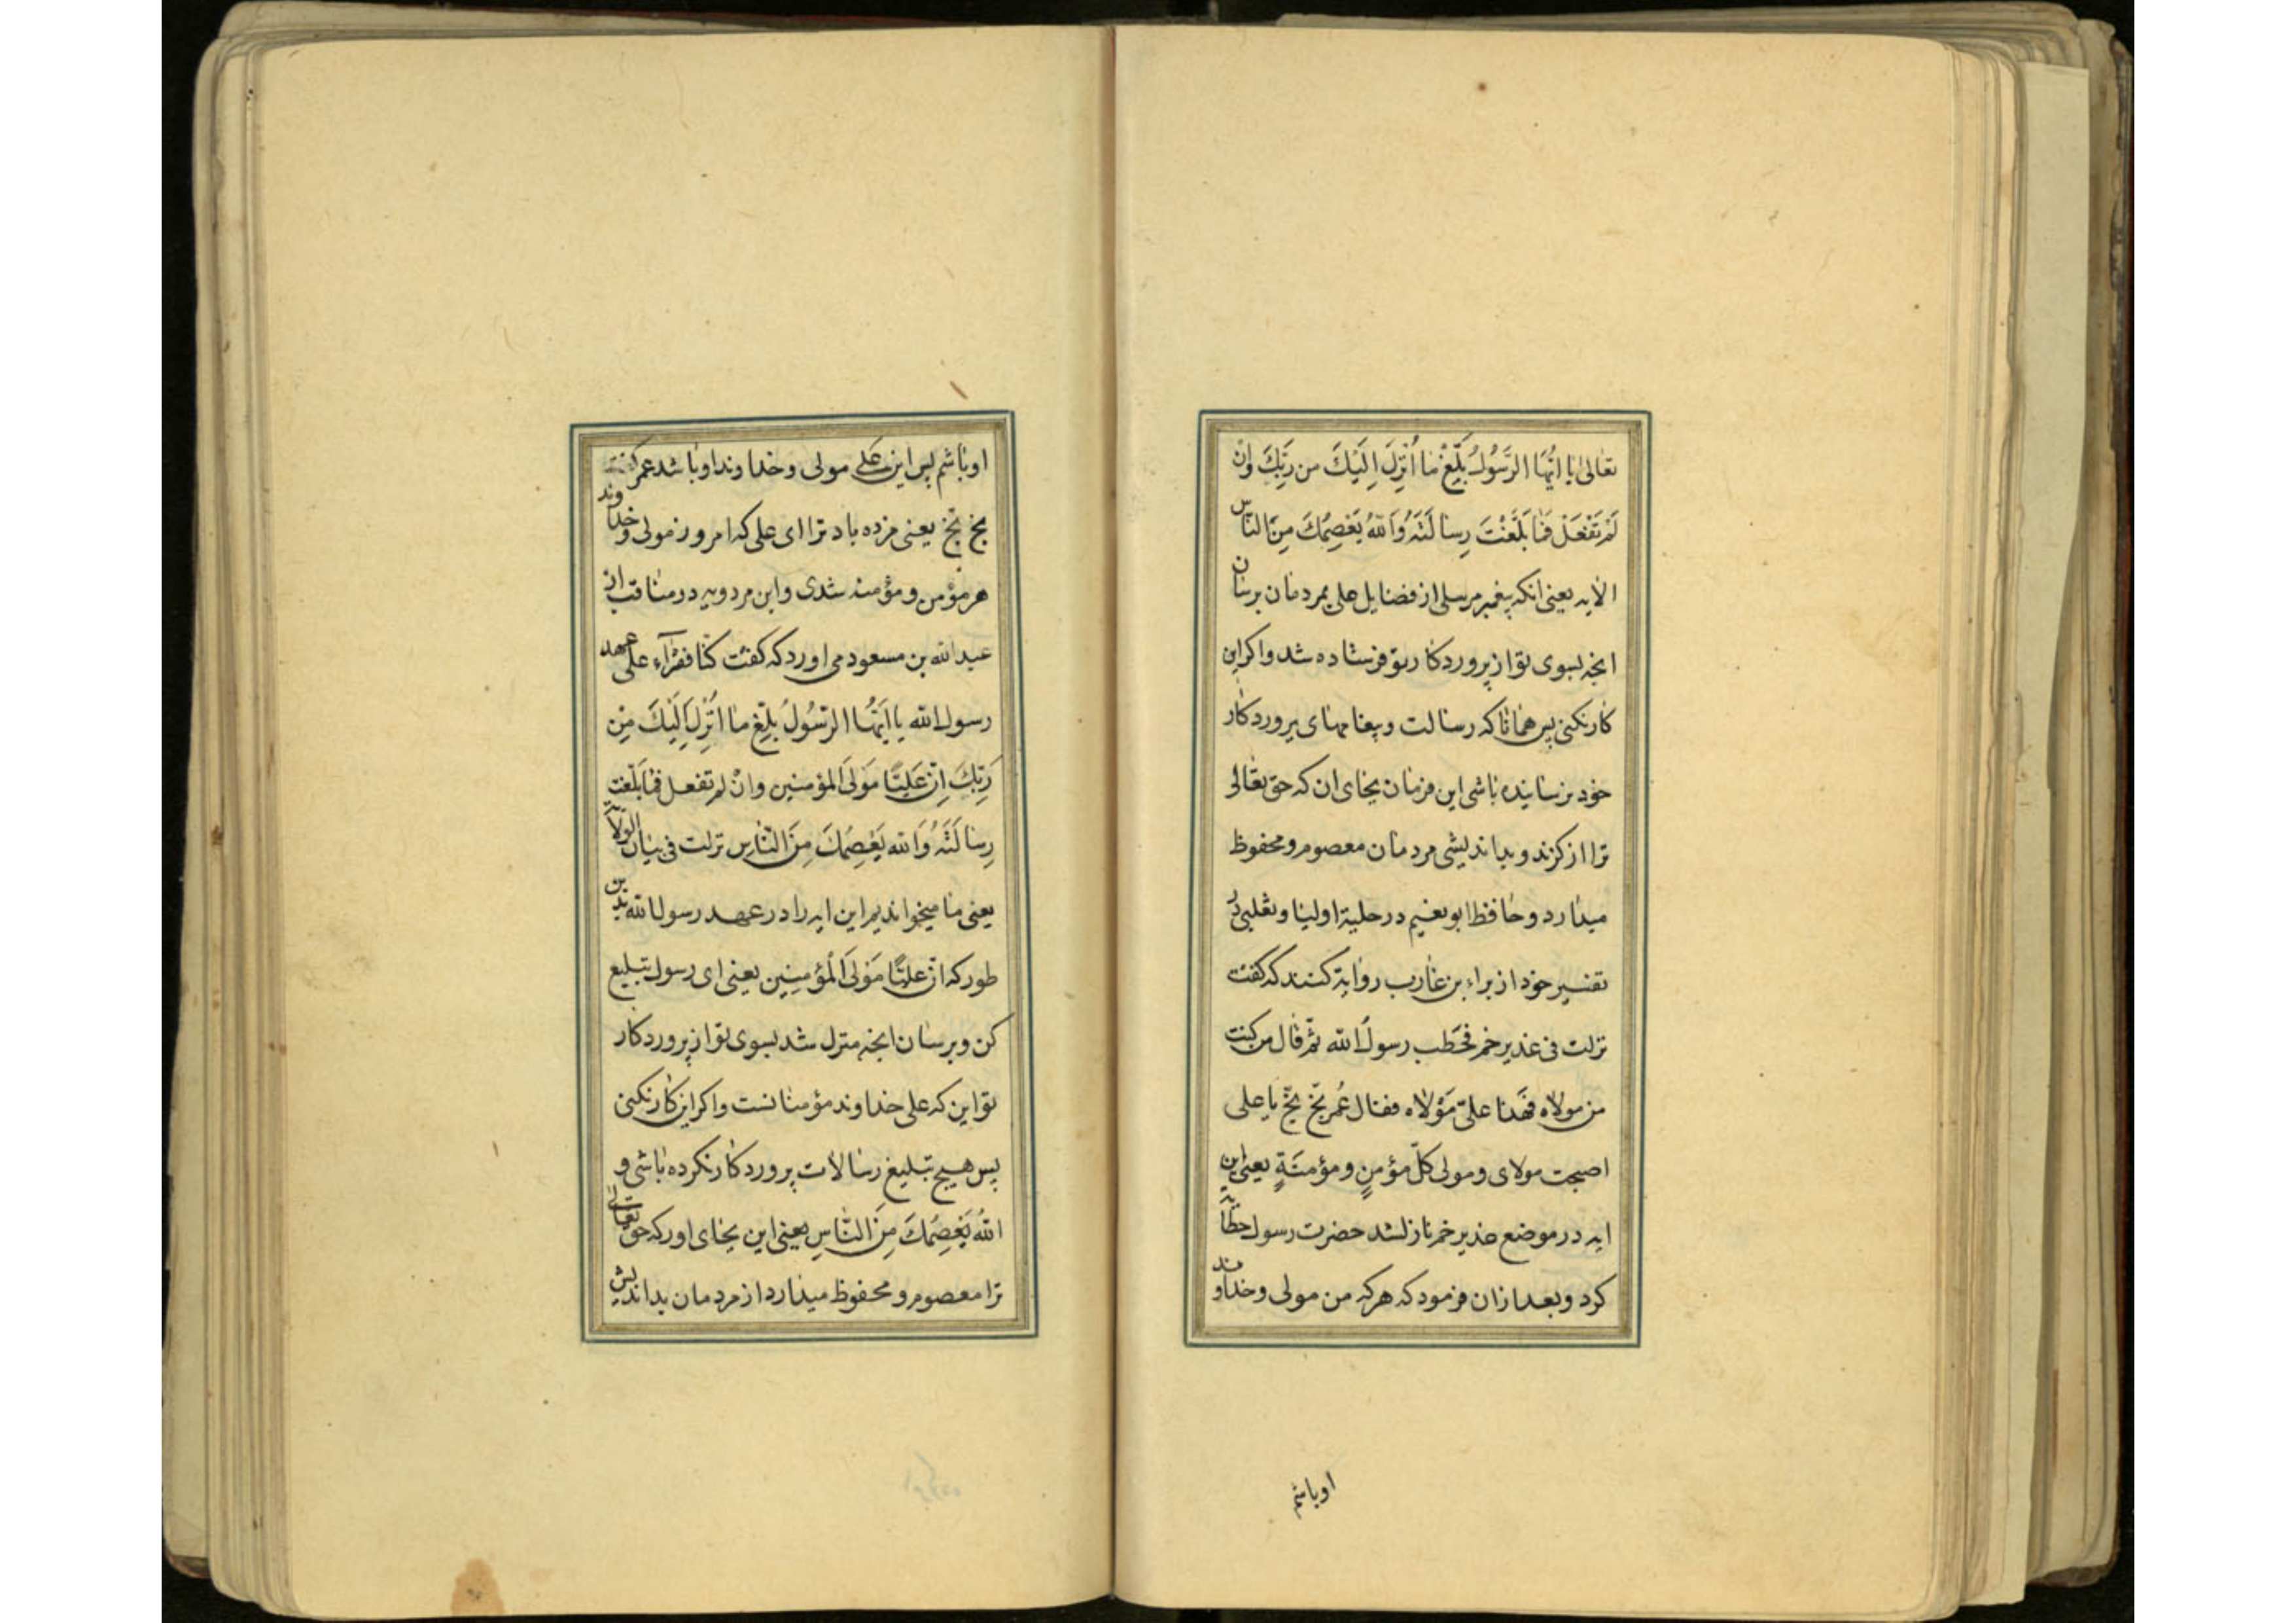 تعالی یا ایُّهَا الرَّسُولُ بَلِّغْ مٰا اُنْزِلَ اِلَیْكَ من رَبِّكَ وَانْ
لَمْ تَفْعَلْ فَمٰا بَلَّغْتَ رِسٰالَتَهُ وَاللّٰهُ یَعْصِمُكَ مِنَ النّاس
الایه یعنی انکه پیغمبر مرسلی از فضایل علی بمردمان برسان
انچه بسوی تو از پروردکار تو فرستاده شد واکر این
کار نکنی پس همانا که رسالت و پیغامهای پروردکار
خود نرسانیده باشی این فرمان بجای ان که حق تعالی
ترا از کزند و بداندیشی مردمان معصوم و محفوظ
میدارد و حافظ ابو نعیم در حلیة اولیا و ثعلبی در
تفسیر خود از براء بن عازب روایة کنند که کفت
نزلت فی غدیر خم فخَطب رسولُ الله ثمّ قال من کنت
من مولاه فهَذا علیّ مَوْلاه فقال عُمر بَخّ بَخّ یا علی
اصبحت مولای و مولی کلّ مؤمنٍ و مؤمنَةٍ یعنی این
ایه در موضع غدیر خم نازلشد حضرت رسول خطابه
کرد و بعد ازان فرمود که هرکه من مولی و خداوند
اوباشم
اوباشم پس این عَلی مولی و خداوند اوباشد عمر کفت
بخ بَخّ یعنی مژده باد ترا ای علی که امروز مولی و خداوند
هر مؤمن و مؤمنه شدی وابن مردویه در مناقب از
عبدالله بن مسعود می اورد که کفت کنّا نقرَاء علی عهد
رسول الله یا اَیُّهَا الرّسُولُ بلِّغ مٰا اُنْزِلَ اِلَیْكَ مِن
رَبِّكَ اِنّ عَلیّاً مَوْلَی المؤمنین وانْ لم تفعل فمٰا بَلّغت
رِسٰالَتَهُ وَالله یَعْصِمُكَ مِنَ النّاسِ نزلت فی بیان الولایة
یعنی ما میخواندیم این ایه را در عهد رسول الله بدین
طور که انّ علیّاً مَوْلَی الْمُؤمِنِین یعنی ای رسول تبلیغ
کن و برسان انچه منزل شد بسوی تو از پروردکار
تو این که علی خداوند مؤمنانست واکر این کار نکنی
پس هیچ تبلیغ رسالات پروردکار نکرده باشی و
اللهُ یَعْصِمُكَ مِنَ النّاسِ یعنی این بجای اور که حق تعالی
ترا معصوم و محفوظ میدارد از مردمان بداندیش